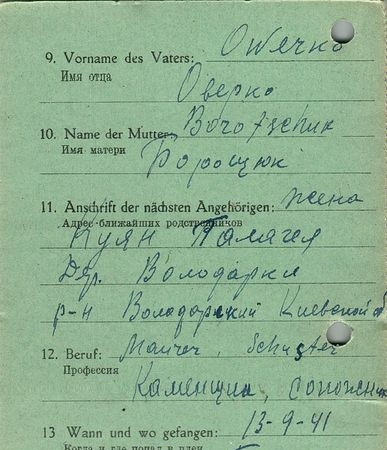 9. Vorname des Vaters: Owerko
Имя отца
Оверко
10. Name der Mutter: Borotschuk
Имя матери
Борощюк
11. Anschrift der nächsten Angehörigen: жена
Адрес ближайших родственников
Куян Палагея
Дер. Володарки
р-н Володарский Киевской о
12. Beruf: Maurer, Schuster
Профессия
Каменщик, сопожник
13 Wann und wo gefangen: 13-9-41
Когда и где попал в плен